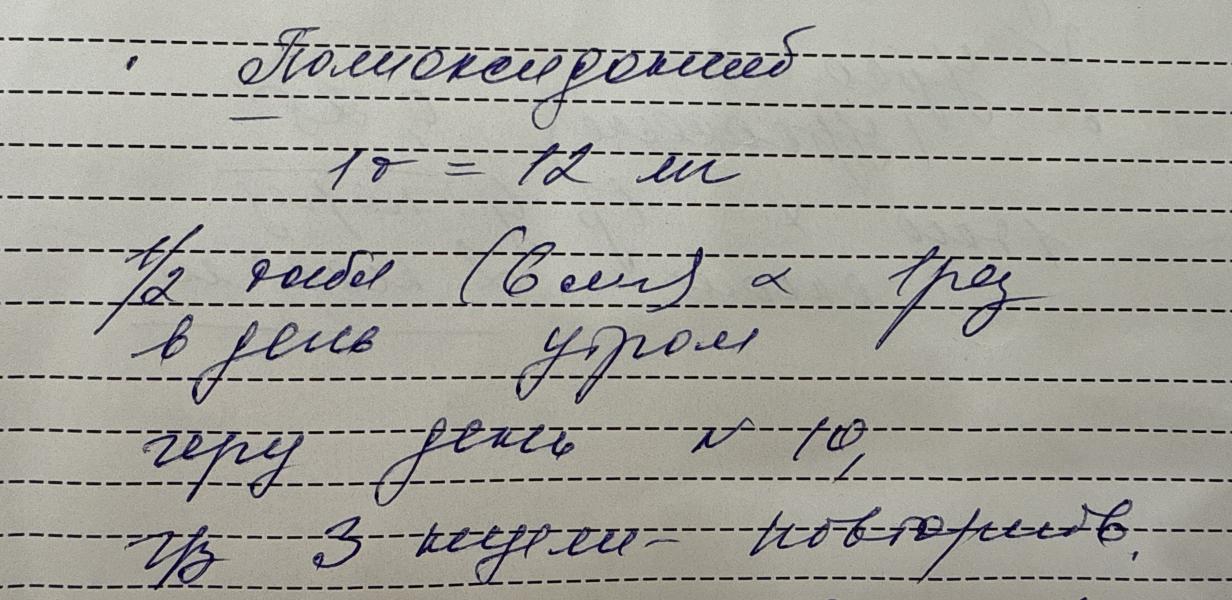 · Полиоксидоний
1т = 12 мг
1/2 табл (6 мг) х 1 раз
в день утром
через день N 10,
чз 3 недели - повторить.